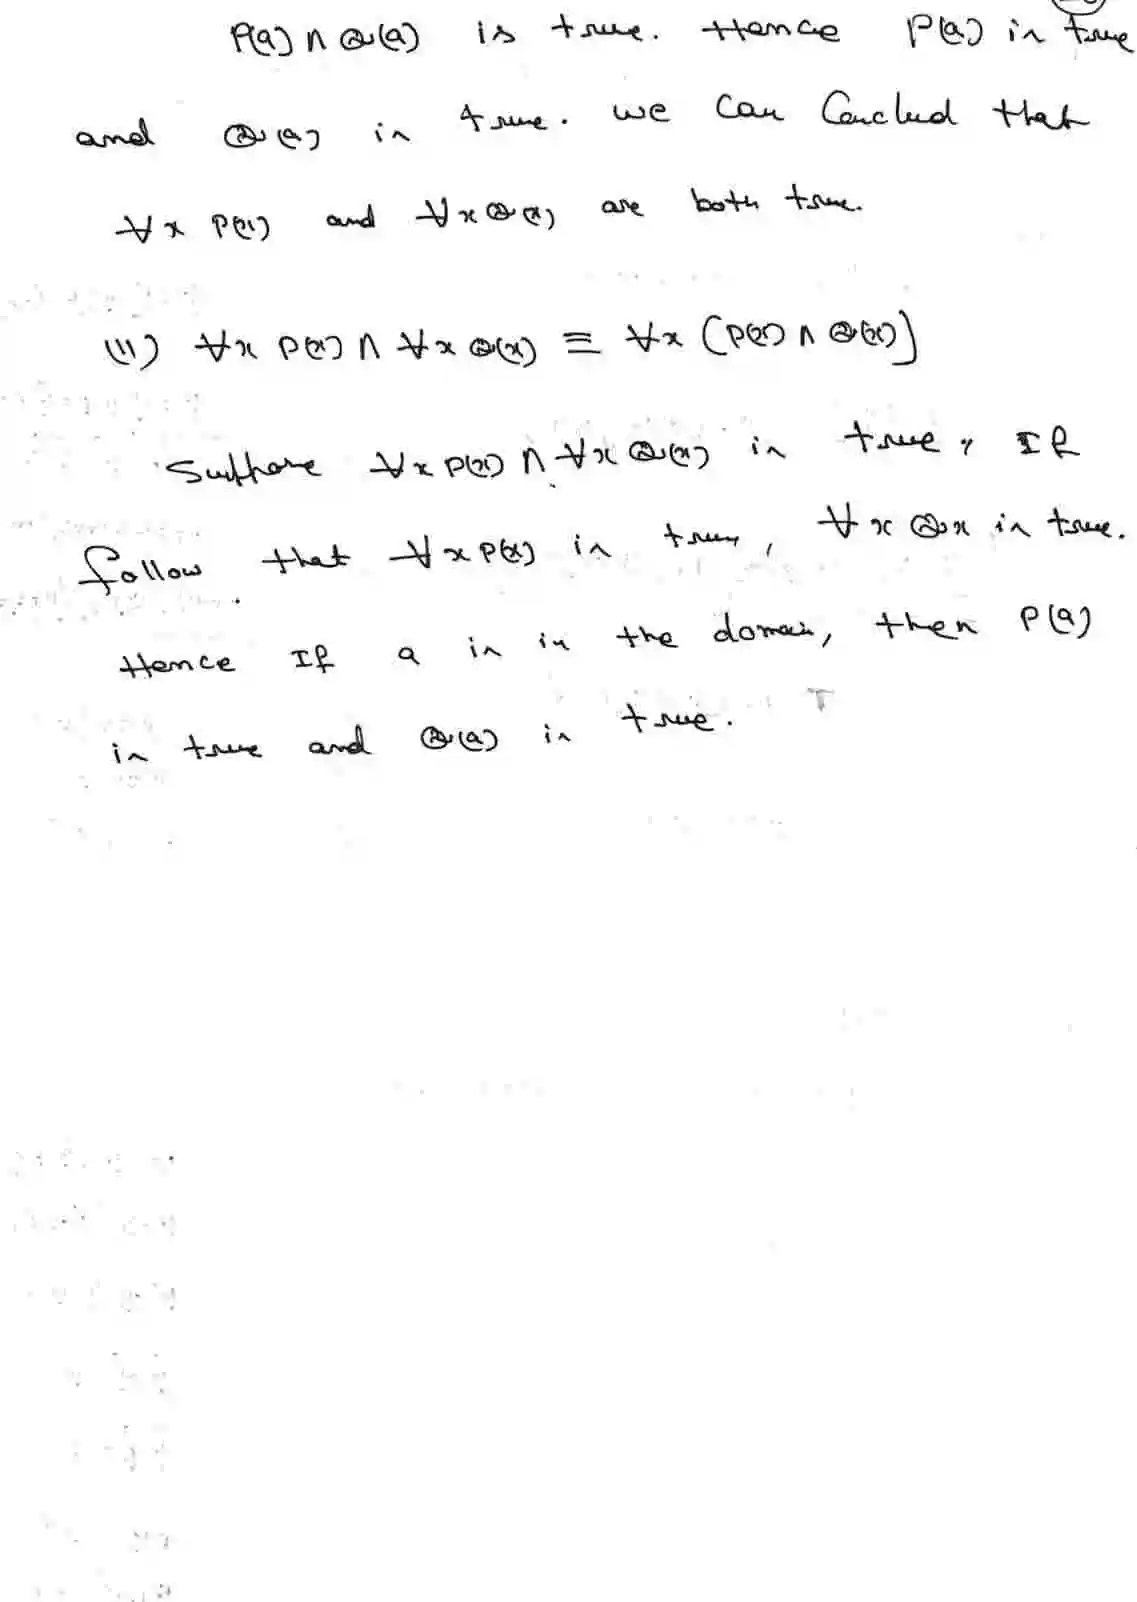 P(a) ∧ Q(a) is true. Hence P(a) is true
and Q(a) is true. we can Conclud that
∀x P(x) and ∀x Q(x) are both true.
(11) ∀x P(x) ∧ ∀x Q(x) ≡ ∀x (P(x) ∧ Q(x)]
Suppose ∀x P(x) ∧ ∀x Q(x) is true, If
follow that ∀x P(x) is true, ∀x Qx is true.
Hence If a is in the domain, then P(a)
is true and Q(a) is true.